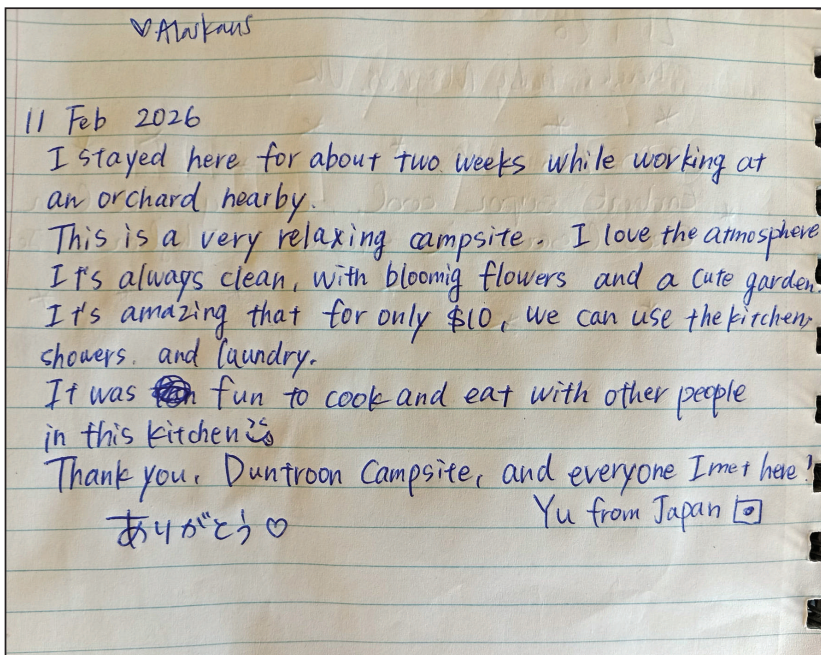 ♡Alaskans
11 Feb 2026
I stayed here for about two weeks while working at
an orchard nearby.
This is a very relaxing campsite. I love the atmosphere
It's always clean, with bloomig flowers and a cute garden.
It's amazing that for only $10, we can use the kitchen,
showers, and laundry.
It was fun to cook and eat with other people
in this kitchen
Thank you, Duntroon Campsite, and everyone I met here!
Yu from Japan
ありがとう♡